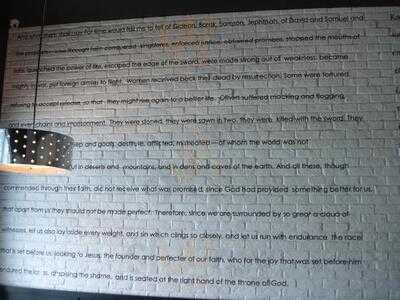 And what more shall I say? For time would fail me to tell of Gideon, Barak, Samson, Jephthah, of David and Samuel and
the prophets—who through faith conquered kingdoms, enforced justice, obtained promises, stopped the mouths of
lions, quenched the power of fire, escaped the edge of the sword, were made strong out of weakness, became
mighty in war, put foreign armies to flight. Women received back their dead by resurrection. Some were tortured,
refusing to accept release, so that they might rise again to a better life. Others suffered mocking and flogging,
and even chains and imprisonment. They were stoned, they were sawn in two, they were killed with the sword. They
and goats, destitute, afflicted, mistreated—of whom the world was not
in deserts and mountains, and in dens and caves of the earth. And all these, though
commended through their faith, did not receive what was promised, since God had provided something better for us,
that apart from us they should not be made perfect. Therefore, since we are surrounded by so great a cloud of
witnesses, let us also lay aside every weight, and sin which clings so closely, and let us run with endurance the race
that is set before us, looking to Jesus, the founder and perfecter of our faith, who for the joy that was set before him
endured the cross, despising the shame, and is seated at the right hand of the throne of God.